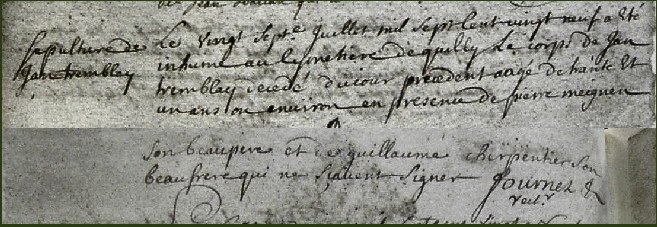 Sepulture de
Jan tremblay
Le vingt septe juillet mil sept cent vingt neuf a été
inhumé au cymetiere de quilly Le corps de Jan
tremblay decedé du jour precedent aagé de trante Et
un ans ou environ en presence de pierre meignen
son beaupere et de guillaume cherpentier son
beaufrere qui ne sçavent signer Journet
rect.r